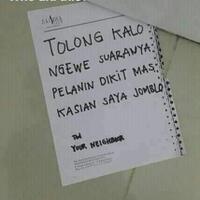 TOLONG KALO
NGEWE SUARANYA
PELANIN DIKIT MAS.
KASIAN SAYA JOMBLO
TTD
YOUR NEIGHBOUR